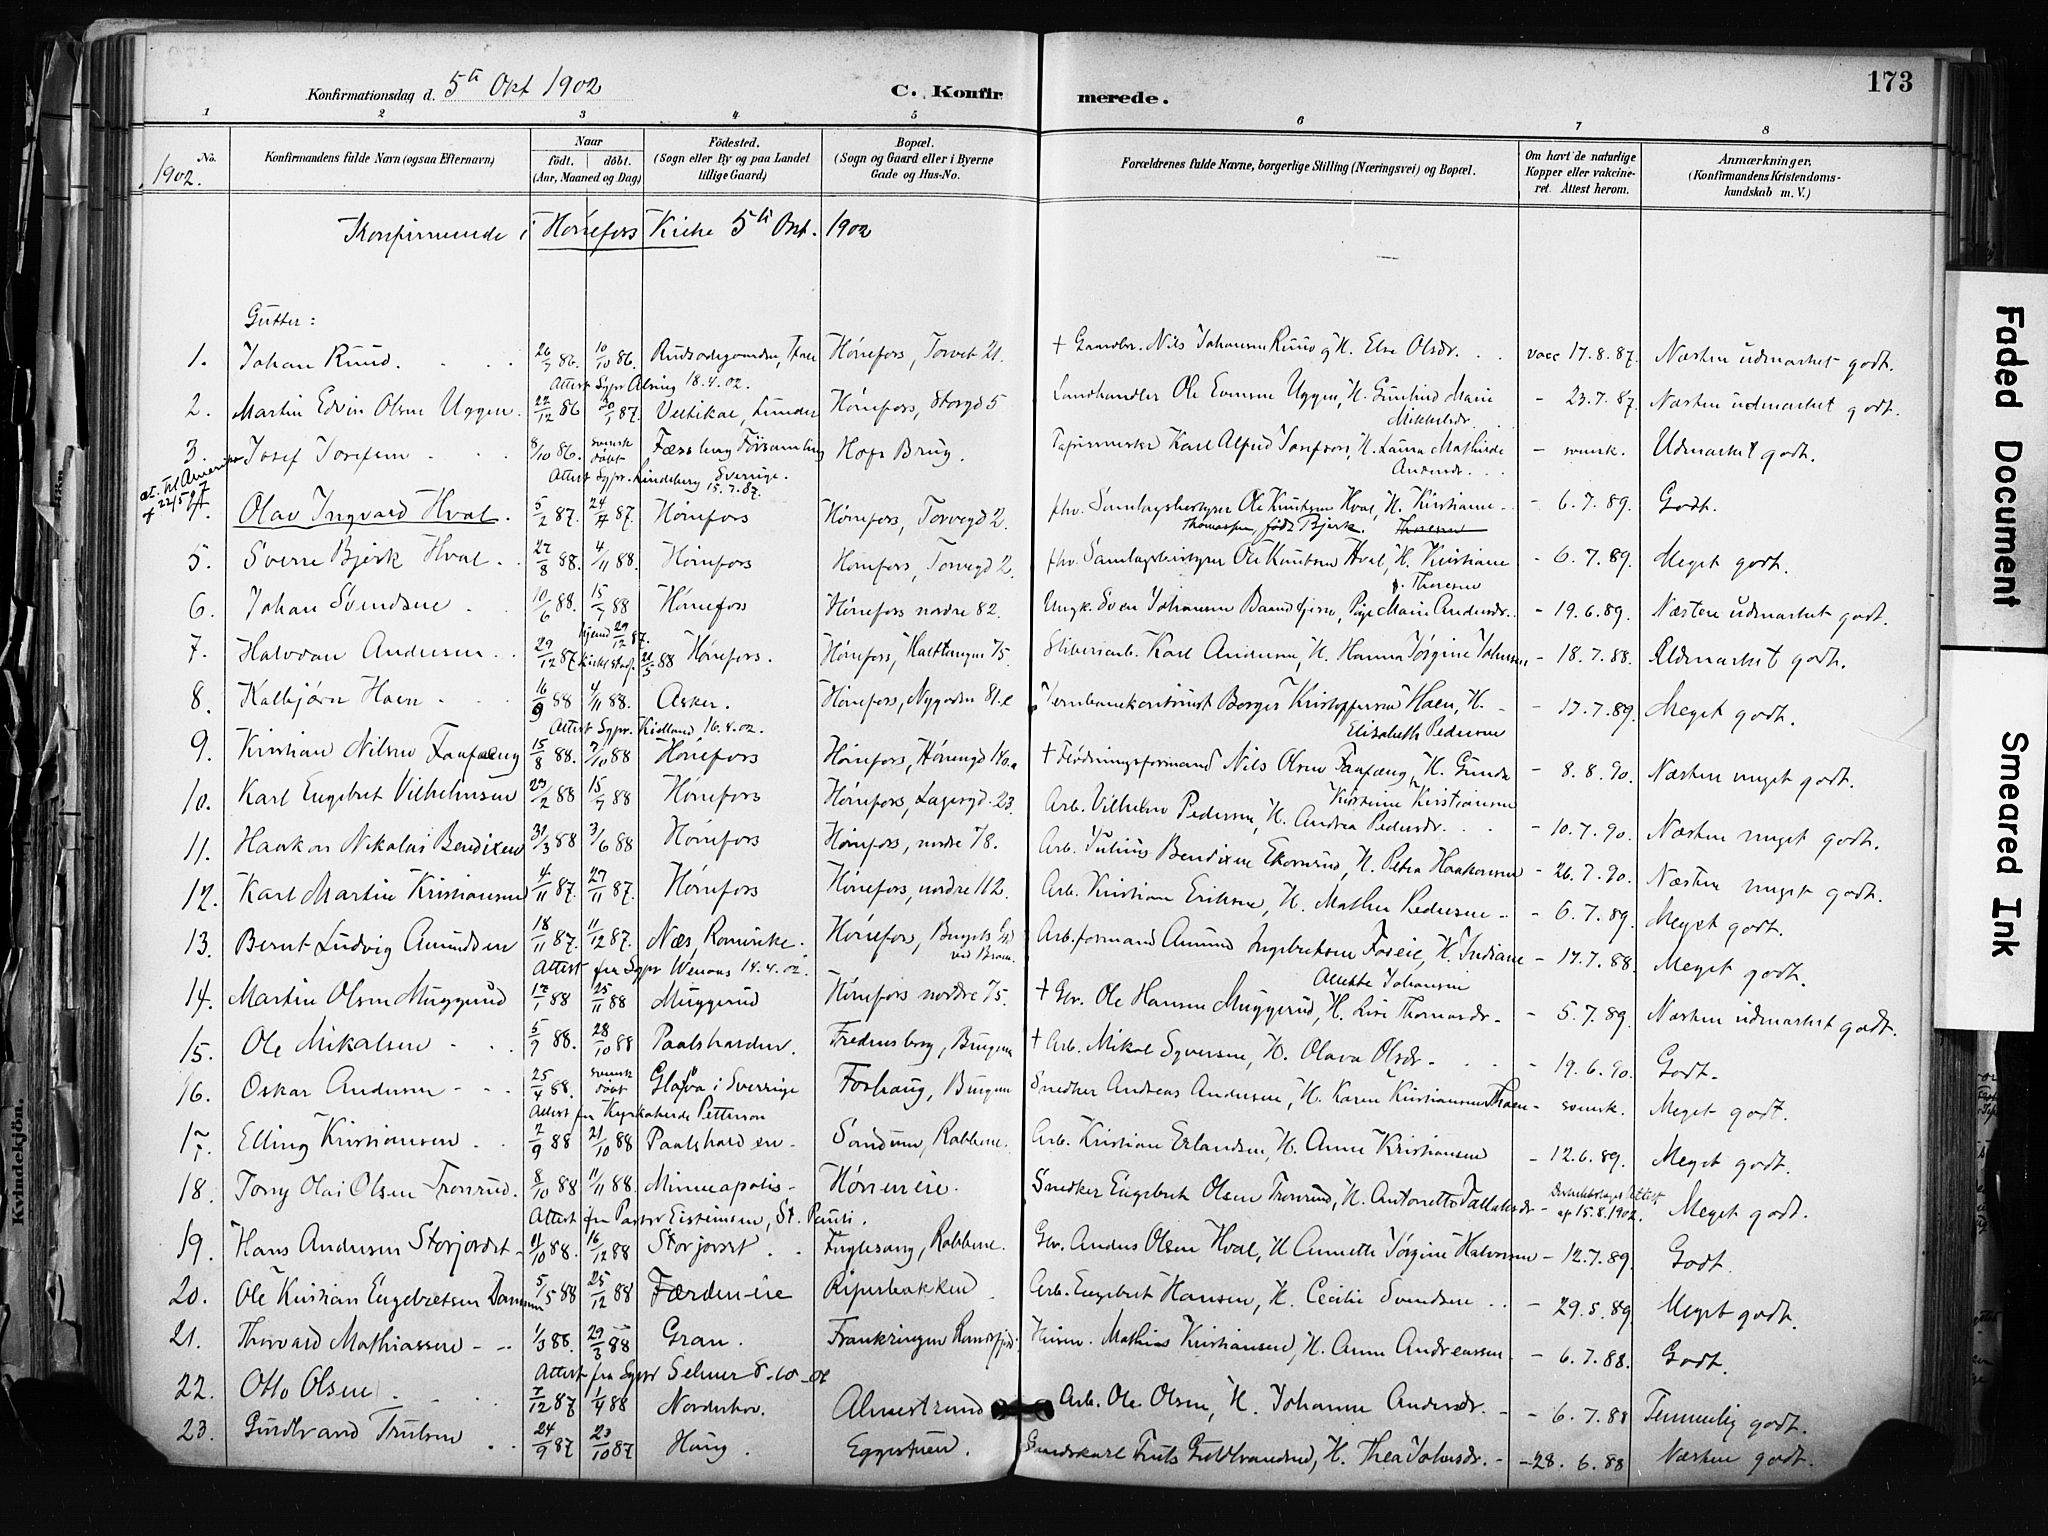 173
Konfirmationsdag d. 5te Okt 1902
C. Konfirmerede.
1 2 3 4 5 6 7 8
No. Konfirmandens fulde Navn (ogsaa Efternavn) Naar født. døbt. (Aar, Maaned og Dag) Fødested. (Sogn eller By og paa Landet tillige Gaard) Bopæl. (Sogn og Gaard eller i Byerne Gade og Hus-No. Forældrenes fulde Navne, borgerlige Stilling (Næringsvei) og Bopæl. Om havt de naturlige Kopper eller vakcineret. Attest herom. Anmærkninger, (Konfirmandens Kristendomskundskab m. V.)
1902.
Konfirmerede i Hønefos Kirke 5te Okt. 1902
Gutter:
1. Johan Ruud. 26/9 86. 10/10 86. Hønefos, Torvet 21. + Gaardbr. Nils Johansen Ruud og H. Else Olsdr. vacc 17.8.87. Næsten udmærket godt.
Attest Sgpr Alsing 18.4.02.
2. Martin Edvin Olsen Uggen. 22/12 86 30/1 87. Veltikal, Lunder Hønefos, Storgd 5 Landhandler Ole Evensen Uggen, H. Gunhild Marie Mikkelsdr. - 23.7.87. Næsten udmærket godt.
3. Josef Josefsen 8/10 86. svensk døbt Fæssberg Forsamling Hofs Brug. Karl Alfred Josefson, H. Laura Mathilde Andersdr. - svensk. Udmærket godt.
Attest Sgpr. Lindeberg Sverrige. 15.7.87.
att. til Amerika 22/5 97
4. Olav Ingvald Hval. 5/2 87. 24/4 87. Hønefos Hønefos, Torvegd 2. fhv. Samlagsbestyrer Ole Knutsen Hval, H. Kristiane Thomassen, født Bjerk. Thoresen - 6.7.89. Godt.
5. Sverre Bjerk Hval. 27/8 88. 4/11 88. Hønefos Hønefos, Torvegd 2. fhv. Samlagsbestyrer Ole Knutsen Hval, H. Kristiane f. Thoresen - 6.7.89. Meget godt.
6. Johan Svendsen 10/6 88. 15/7 88 Hønefos Hønefos nordre 82. Ungk. Sven Johansen Baandgjern, Pige Marie Andersdr. - 19.6.89. Næsten udmærket godt.
7. Halvdan Andersen 29/12 87 hjemd 29/12 87. kirkel stadf. 21/5 88 Hønefos. Hønefos, Haldtangen 75. Sliberiarb. Karl Andersen, H. Hanna Jørgine Johansen - 18.7.88. Udmærket godt.
8. Kalbjørn Haen 16/9 88 4/11 88. Asker. Hønefos, Nygaden 81.c Jernbanekontorist Borger Kristoffersen Haen, H. Elisabeth Pedersen - 17.7.89. Meget godt.
Attest Sgpr. Kielland 16.4.02.
9. Kristian Nilsen Faafæng 15/8 88. 7/10 88 Hønefos Hønefos, Hønengd 140.a + Flødningsformand Nils Olsen Faafæng, H. Gunda Kirstine Kristiansen - 8.8.90. Næsten meget godt.
10. Karl Engebret Vilhelmsen 23/2 88 15/7 88 Hønefos Hønefos, Lagesgd. 23. Arb. Vilhelm Pedersen, H. Andrea Pedersdr. - 10.7.90. Næsten meget godt.
11. Haakon Nikolai Bendixen 31/3 88 3/6 88 Hønefos Hønefos, nordre 78. Arb. Julius Bendixen Ekornrud, H. Petra Haakonsen - 26.7.90. Næsten meget godt.
12. Karl Martin Kristiansen 4/11 87. 27/11 87. Hønefos Hønefos, nordre 112. Arb. Kristian Eriksen, H. Mathea Pedersen - 6.7.89. Meget godt.
13. Bernt Ludvig Amundsen 18/11 87. 11/12 87. Næs, Romerike. Hønefos, Brugets Gd ved Broen. Arb.formand Amund Ingebretsen Foseie, H. Indiane Anette Johansen - 17.7.88. Meget godt.
Attest fra Sgpr Wenaas 14.4.02.
14. Martin Olsen Muggerud 17/1 88 25/11 88 Muggerud Hønefos nordre 75. + Gbr. Ole Hansen Muggerud, H. Lise Thomasdr. - 5.7.89. Næsten udmærket godt.
15. Ole Mikalsen 5/9 88. 28/10 88 Paalsharden. Fredensborg, Brugene + Arb. Mikal Syversen, H. Olava Olsdr. - 19.6.90. Godt.
16. Oskar Andersen 25/4 88. svensk døbt Glafva i Sverrige Foshaug, Brugene Snedker Andreas Andersen, H. Karen Kristiansen Thoen - svensk. Meget godt.
Attest fra Kyrkoherde Petterson
17. Elling Kristiansen 2/9 88 21/10 88 Paalsharden. Sandum, Rabbene. Arb. Kristian Erlandsen, H. Anne Kristiansen - 12.6.89. Meget godt.
18. Tony Olai Olsen Tronrud. 8/10 88 11/11 88. Minneapolis. Hønen eie. Snedker Engebret Olsen Tronrud, H. Antonette Tallaksdr - af 15.8.1902. Meget godt.
Attest fra Pastor Eisteinsen, St. Pauli.
19. Hans Andersen Storjordet 11/10 88. 16/12 88 Storjordet. Fuglesang, Rabbene. Gbr. Anders Olsen Hval, H Annette Jørgine Halvorsen - 12.7.89. Godt.
20. Ole Kristian Engebretsen Dammen 5/5 88 25/12 88 Færden-eie Ripersbakken Arb. Engebret Hansen, H. Cecilie Svendsen - 29.5.89. Meget godt.
21. Thorvald Mathiassen 1/3 88. 29/3 88 Gran. Frankringen Randsfjord. Mathias Kristiansen, H. Anne Andreassen - 6.7.88. Godt.
Attest fra Sgpr Selmer 8-10-02
22. Otto Olsen 7/12 87 1/4 88 Norderhov. Almestrand Arb. Ole Olsen, H. Johanne Andersdr. - 6.7.88 Temmelig godt.
23. Guldbrand Trulsen 24/9 87 23/10 87 Haug. Eggestuen. Gaardskarl Truls Guldbrandsen, H. Thea Johnsdr. - 28.6.88 Næsten godt.
Faded Document
Smeared Ink
Kvindekjön.